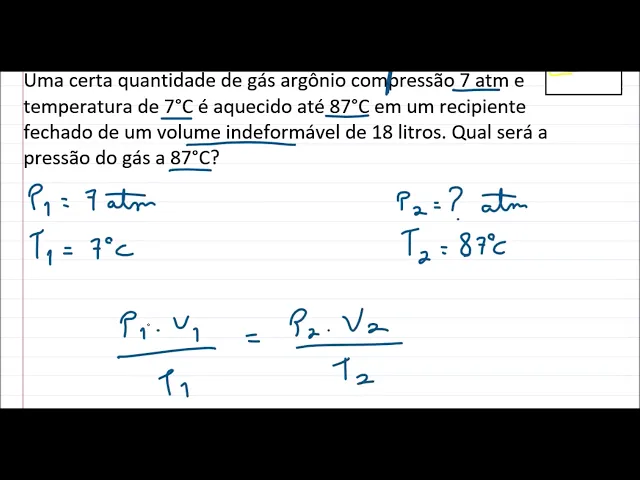 Uma certa quantidade de gás argônio com pressão 7 atm e
temperatura de 7°C é aquecido até 87°C em um recipiente
fechado de um volume indeformável de 18 litros. Qual será a
pressão do gás a 87°C?
P₁ = 7 atm
P₂ = ? atm
T₁ = 7°C
T₂ = 87°C
P₁ . V₁ = P₂ . V₂
T₁ T₂